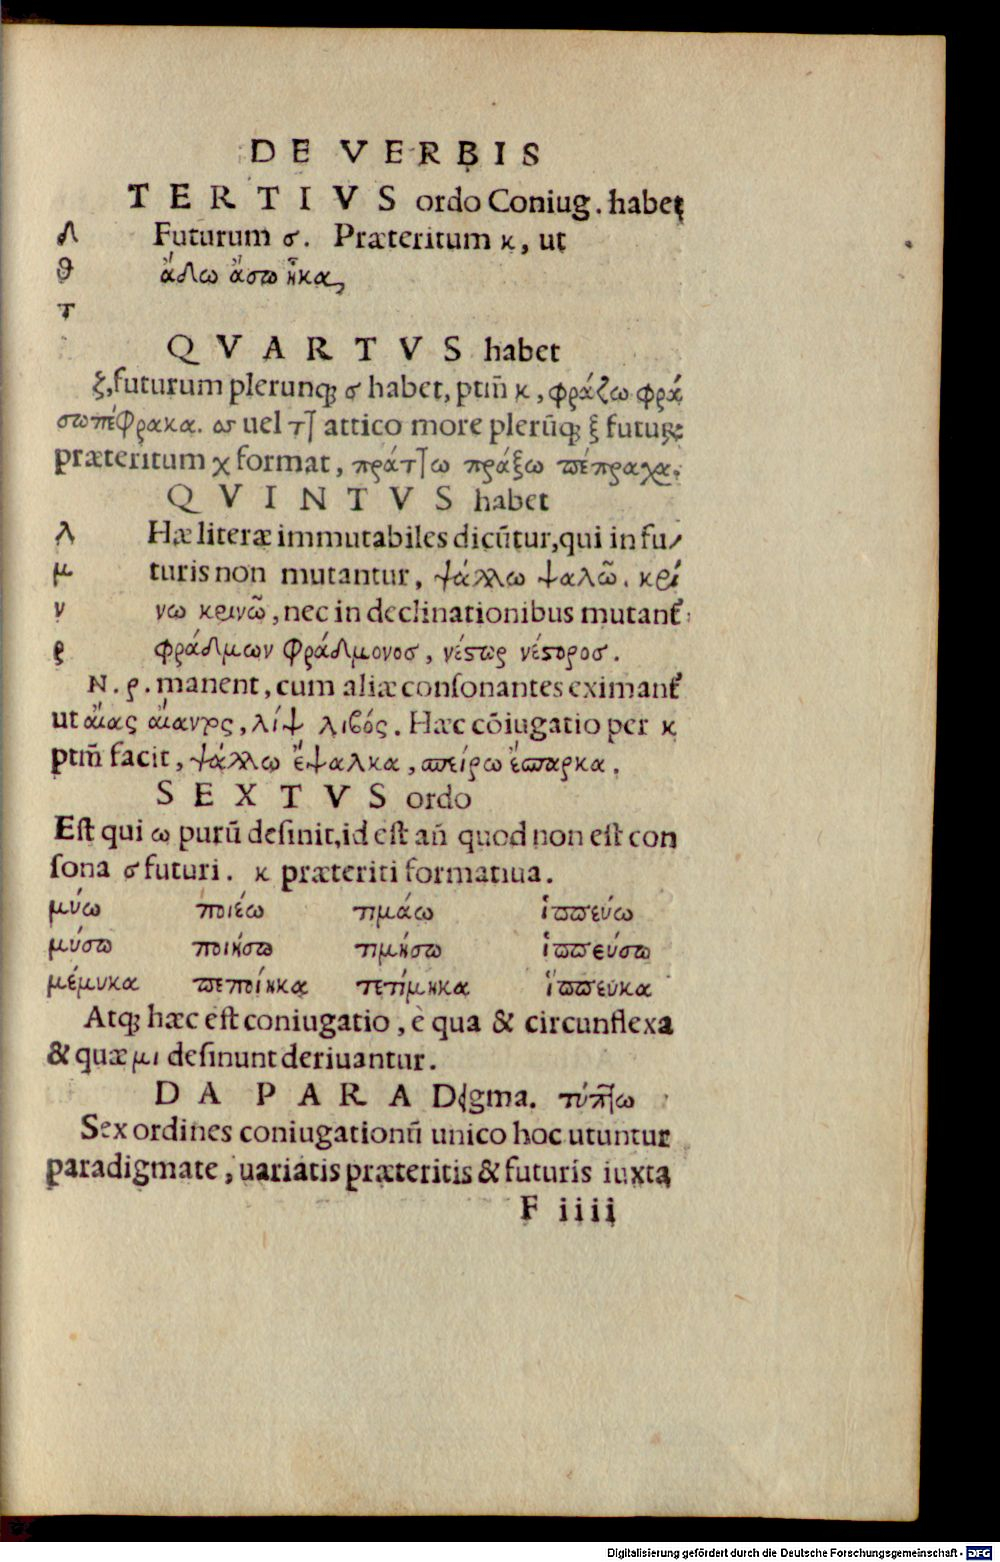 DE VERBIS
TERTIVS ordo Coniug. habet
δ Futurum σ. Præteritum κ, ut
θ ἄδω ἄσω ἧκα,
τ
QVARTVS habet
ζ, futurum plerunq; σ habet, ptm̃ κ, φράζω φρά
σω πέφρακα. σσ uel ττ attico more plerũq; ξ futuꝝ:
præteritum χ format, πράττω πράξω πέπραχα.
QVINTVS habet
λ Hæ literæ immutabiles dicũtur, qui in fu-
μ turis non mutantur, ψάλλω ψαλῶ. κρί
ν νω κρινῶ, nec in declinationibus mutant᷑
ρ φράδμων φράδμονος, νέστωρ νέστορος.
N. ρ. manent, cum aliæ consonantes eximant᷑
ut αἴας αἴαντος, λίψ λιβός. Hæc cõiugatio per κ
ptm̃ facit, ψάλλω ἔψαλκα, σπείρω ἔσπαρκα.
SEXTVS ordo
Est qui ω purũ desinit, id est añ quod non est con
sona σ futuri. κ præteriti formatiua.
μύω ποιέω τιμάω ἱππεύω
μύσω ποιήσω τιμήσω ἱππεύσω
μέμυκα πεποίηκα τετίμηκα ἵππευκα
Atq; hæc est coniugatio, è qua & circunflexa
& quæ μι desinunt deriuantur.
DA PARADigma. τύπτω
Sex ordines coniugationũ unico hoc utuntur
paradigmate, uariatis præteritis & futuris iuxta
F iiii
Digitalisierung gefördert durch die Deutsche Forschungsgemeinschaft - DFG